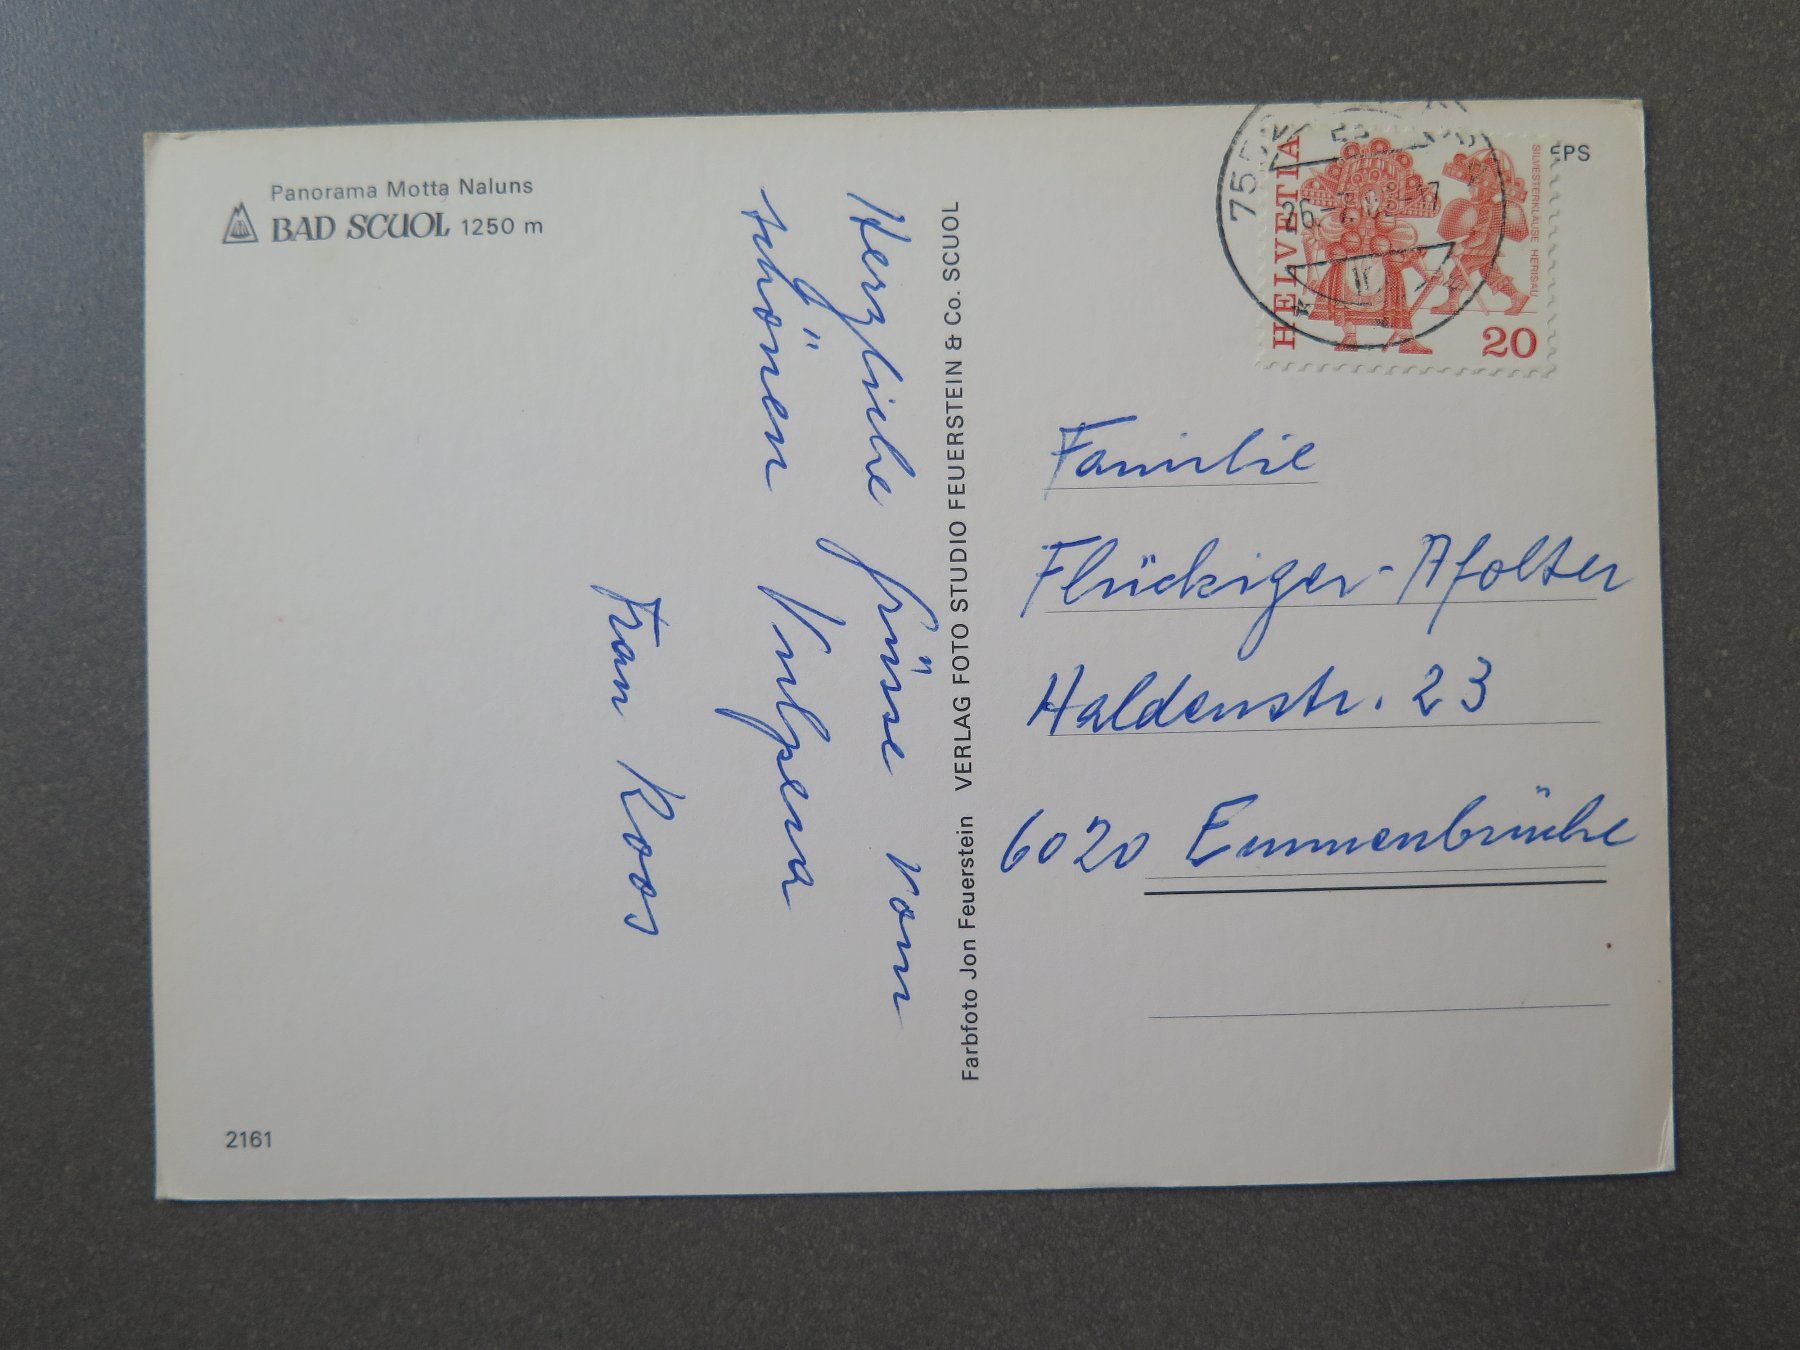 Panorama Motta Naluns
BAD SCUOL 1250 m
Herzliche Grüsse vom
schönen Vulpera
Frau Roos
2161
Farbfoto Jon Feuerstein VERLAG FOTO STUDIO FEUERSTEIN & Co. SCUOL
HELVETIA
SILVESTERKLÄUSE HERISAU
20
Familie
Flückiger-Afolter
Haldenstr. 23
6020 Emmenbrücke